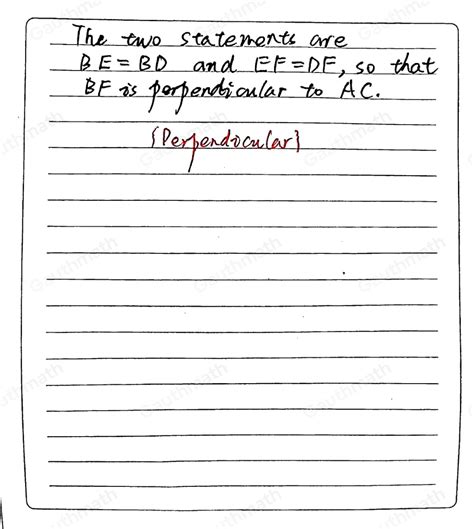 The two statements are
BE=BD and EF=DF, so that
BF is perpendicular to AC.
{Perpendocular}